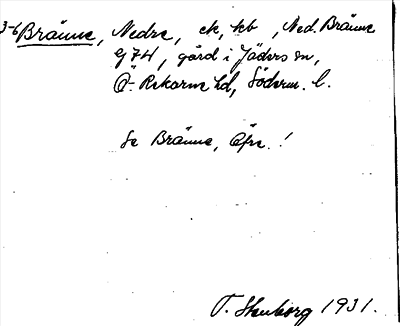 3-6 Bränne, Nedre, ek, kb, Ned. Bränne
G74, gård i Jäders sn,
Ö. Rekarne hd, Söderm. l.
Se Bränne, Öfre!
T. Stenborg 1931.